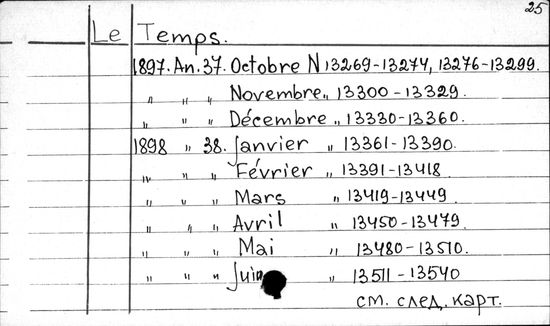 25
Le Temps.
1897. An. 37. Octobre N 13269-13274, 13276-13299.
" " " Novembre " 13300-13329.
" " " Décembre " 13330-13360.
1898 " 38. Janvier " 13361-13390.
" " " Février " 13391-13418
" " " Mars " 13419-13449
" " " Avril " 13450-13479
" " " Mai " 13480-13510.
" " " Juin " 13511-13540
см. след. карт.